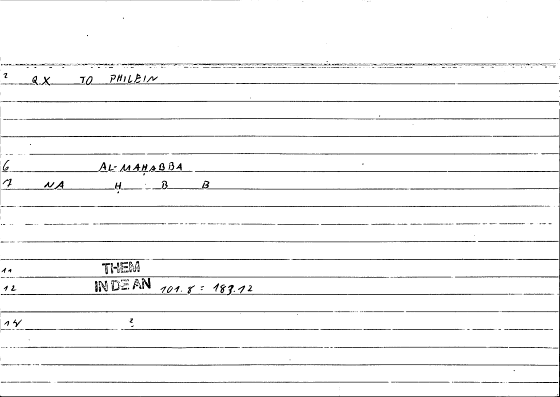 2 QX TO PHILEIN
6 AL-MAḤABBA
7 NA Ḥ B B
11 THEM
12 IN DE AN 101.8 = 189.12
14 2